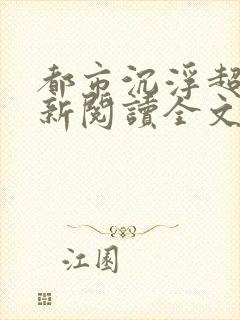 都市沉浮超
新閱讀全文
江園